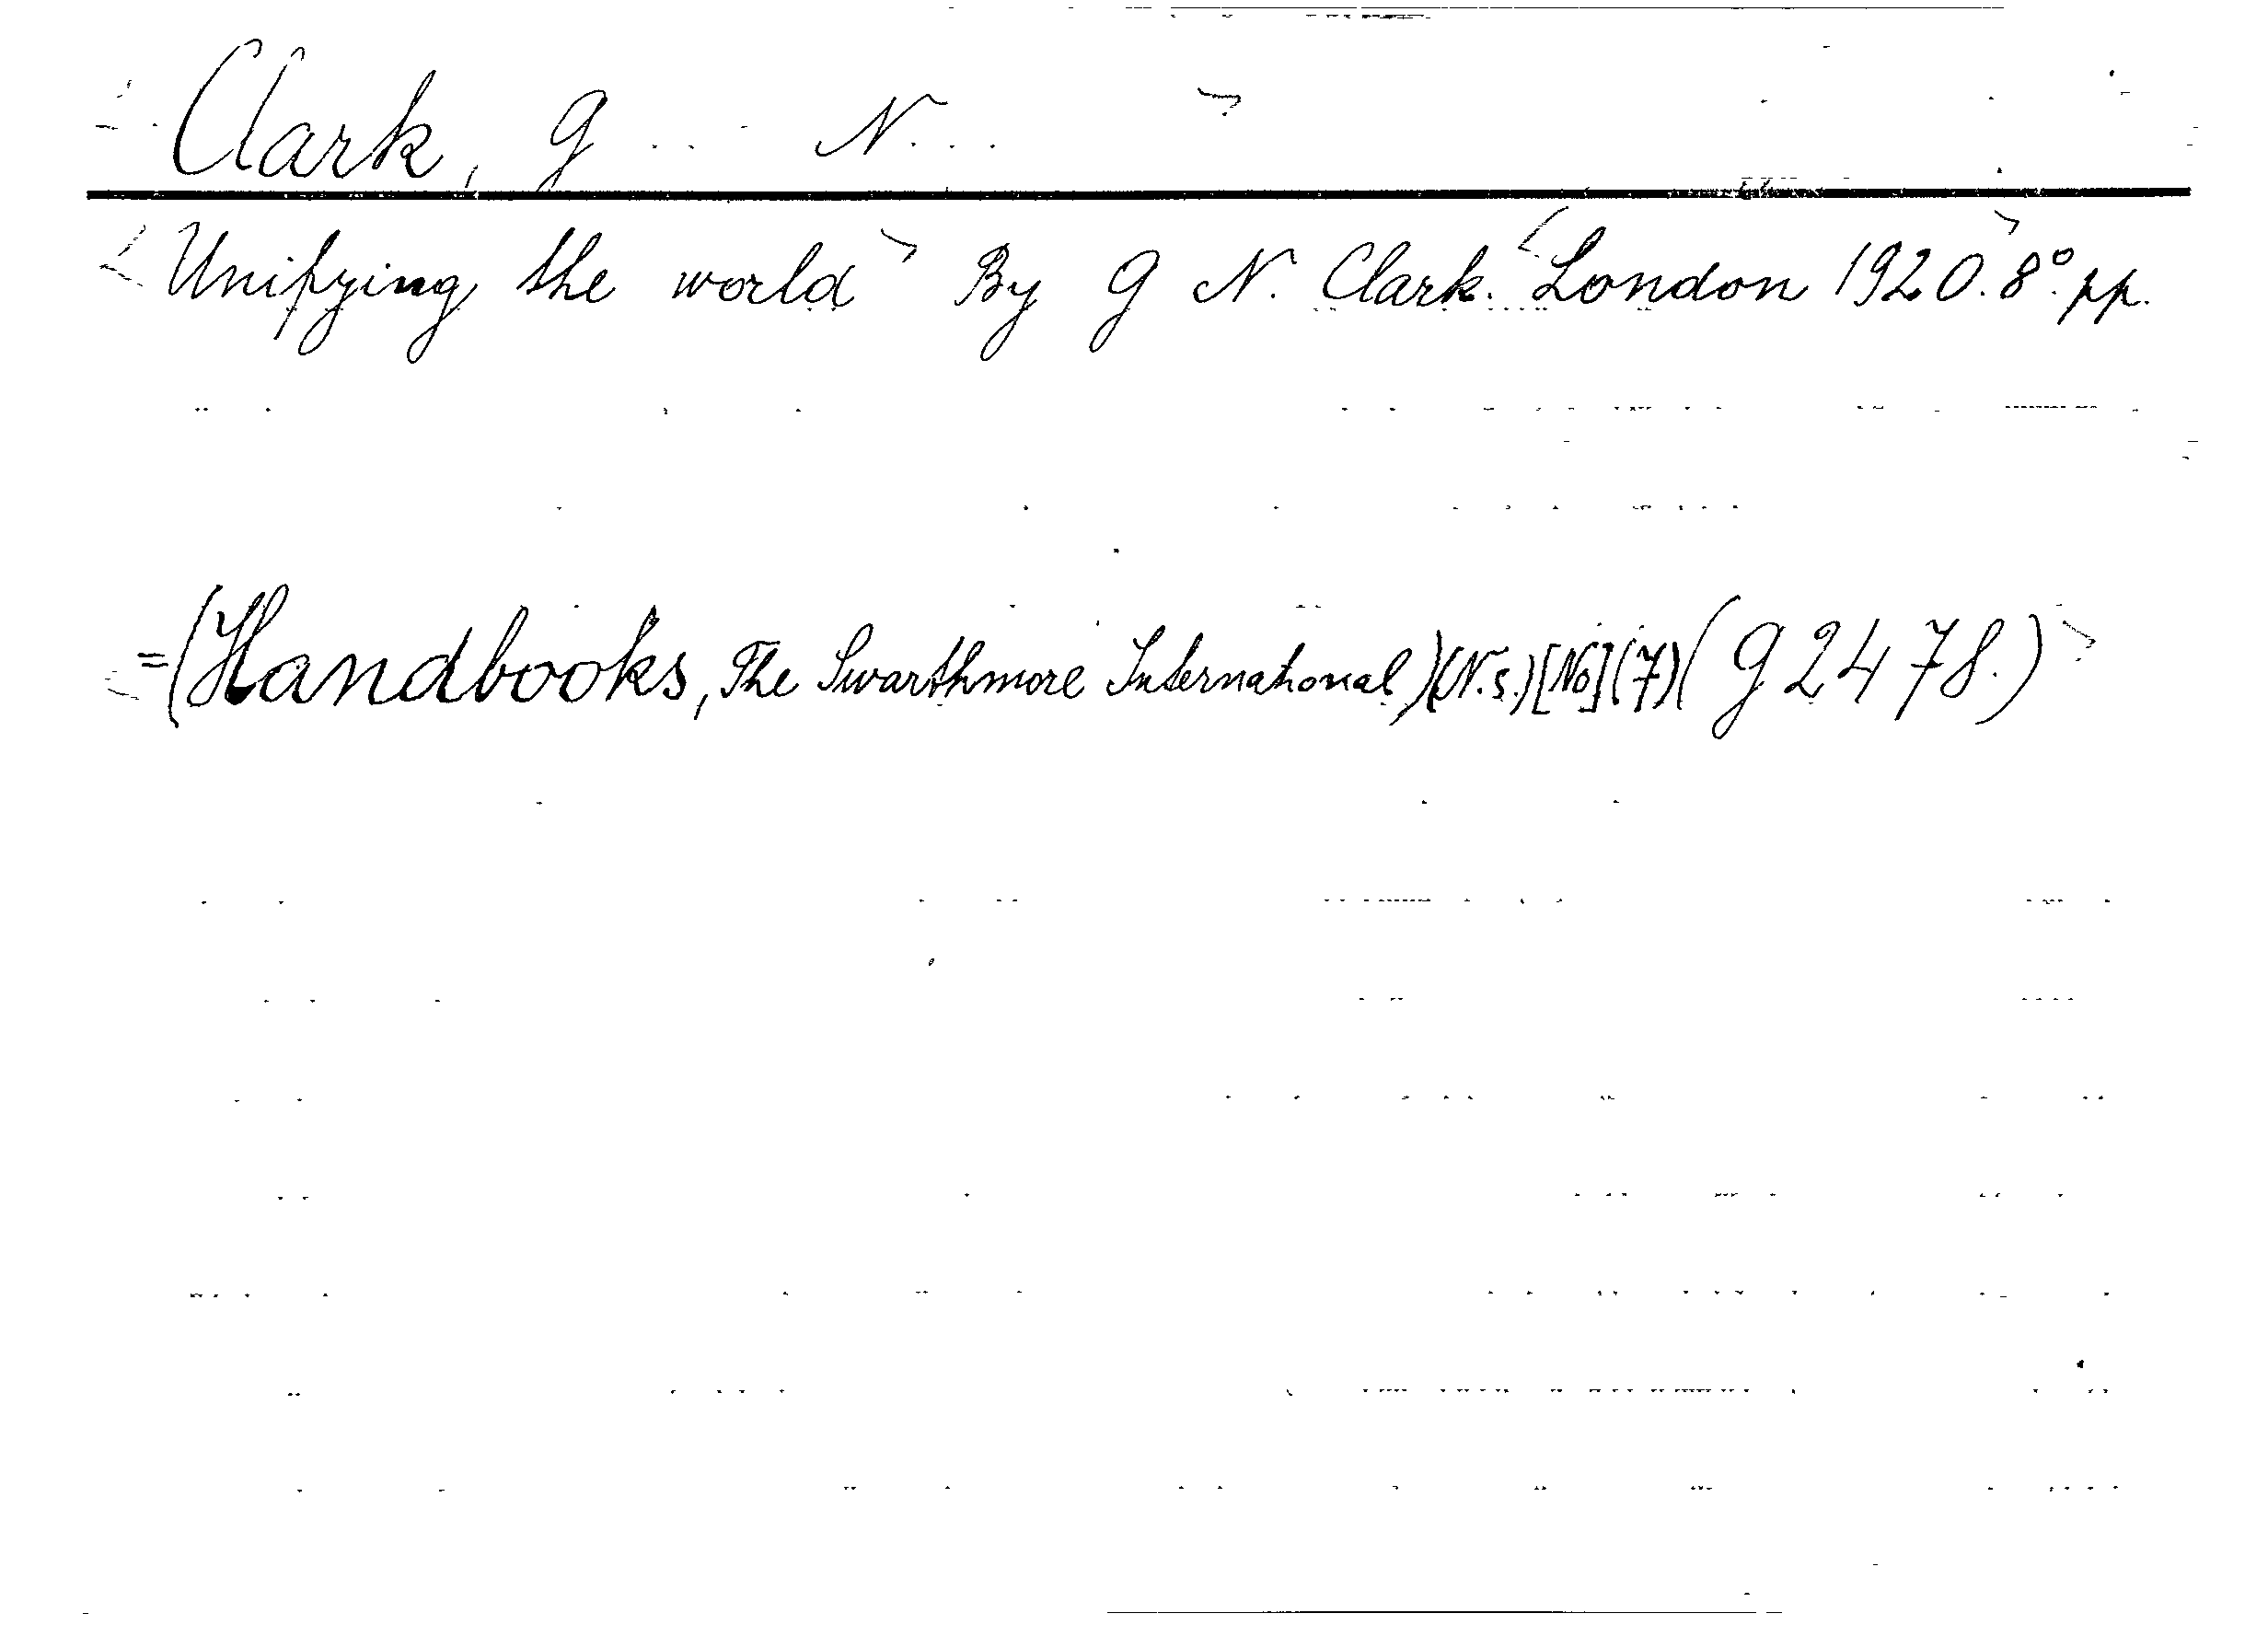 Clark, G... N...
Unifying the world By G N. Clark. London 1920. 8°. pp.
=(Handbooks, The Swarthmore International)(N.s.)[No](7)(G 2478.)